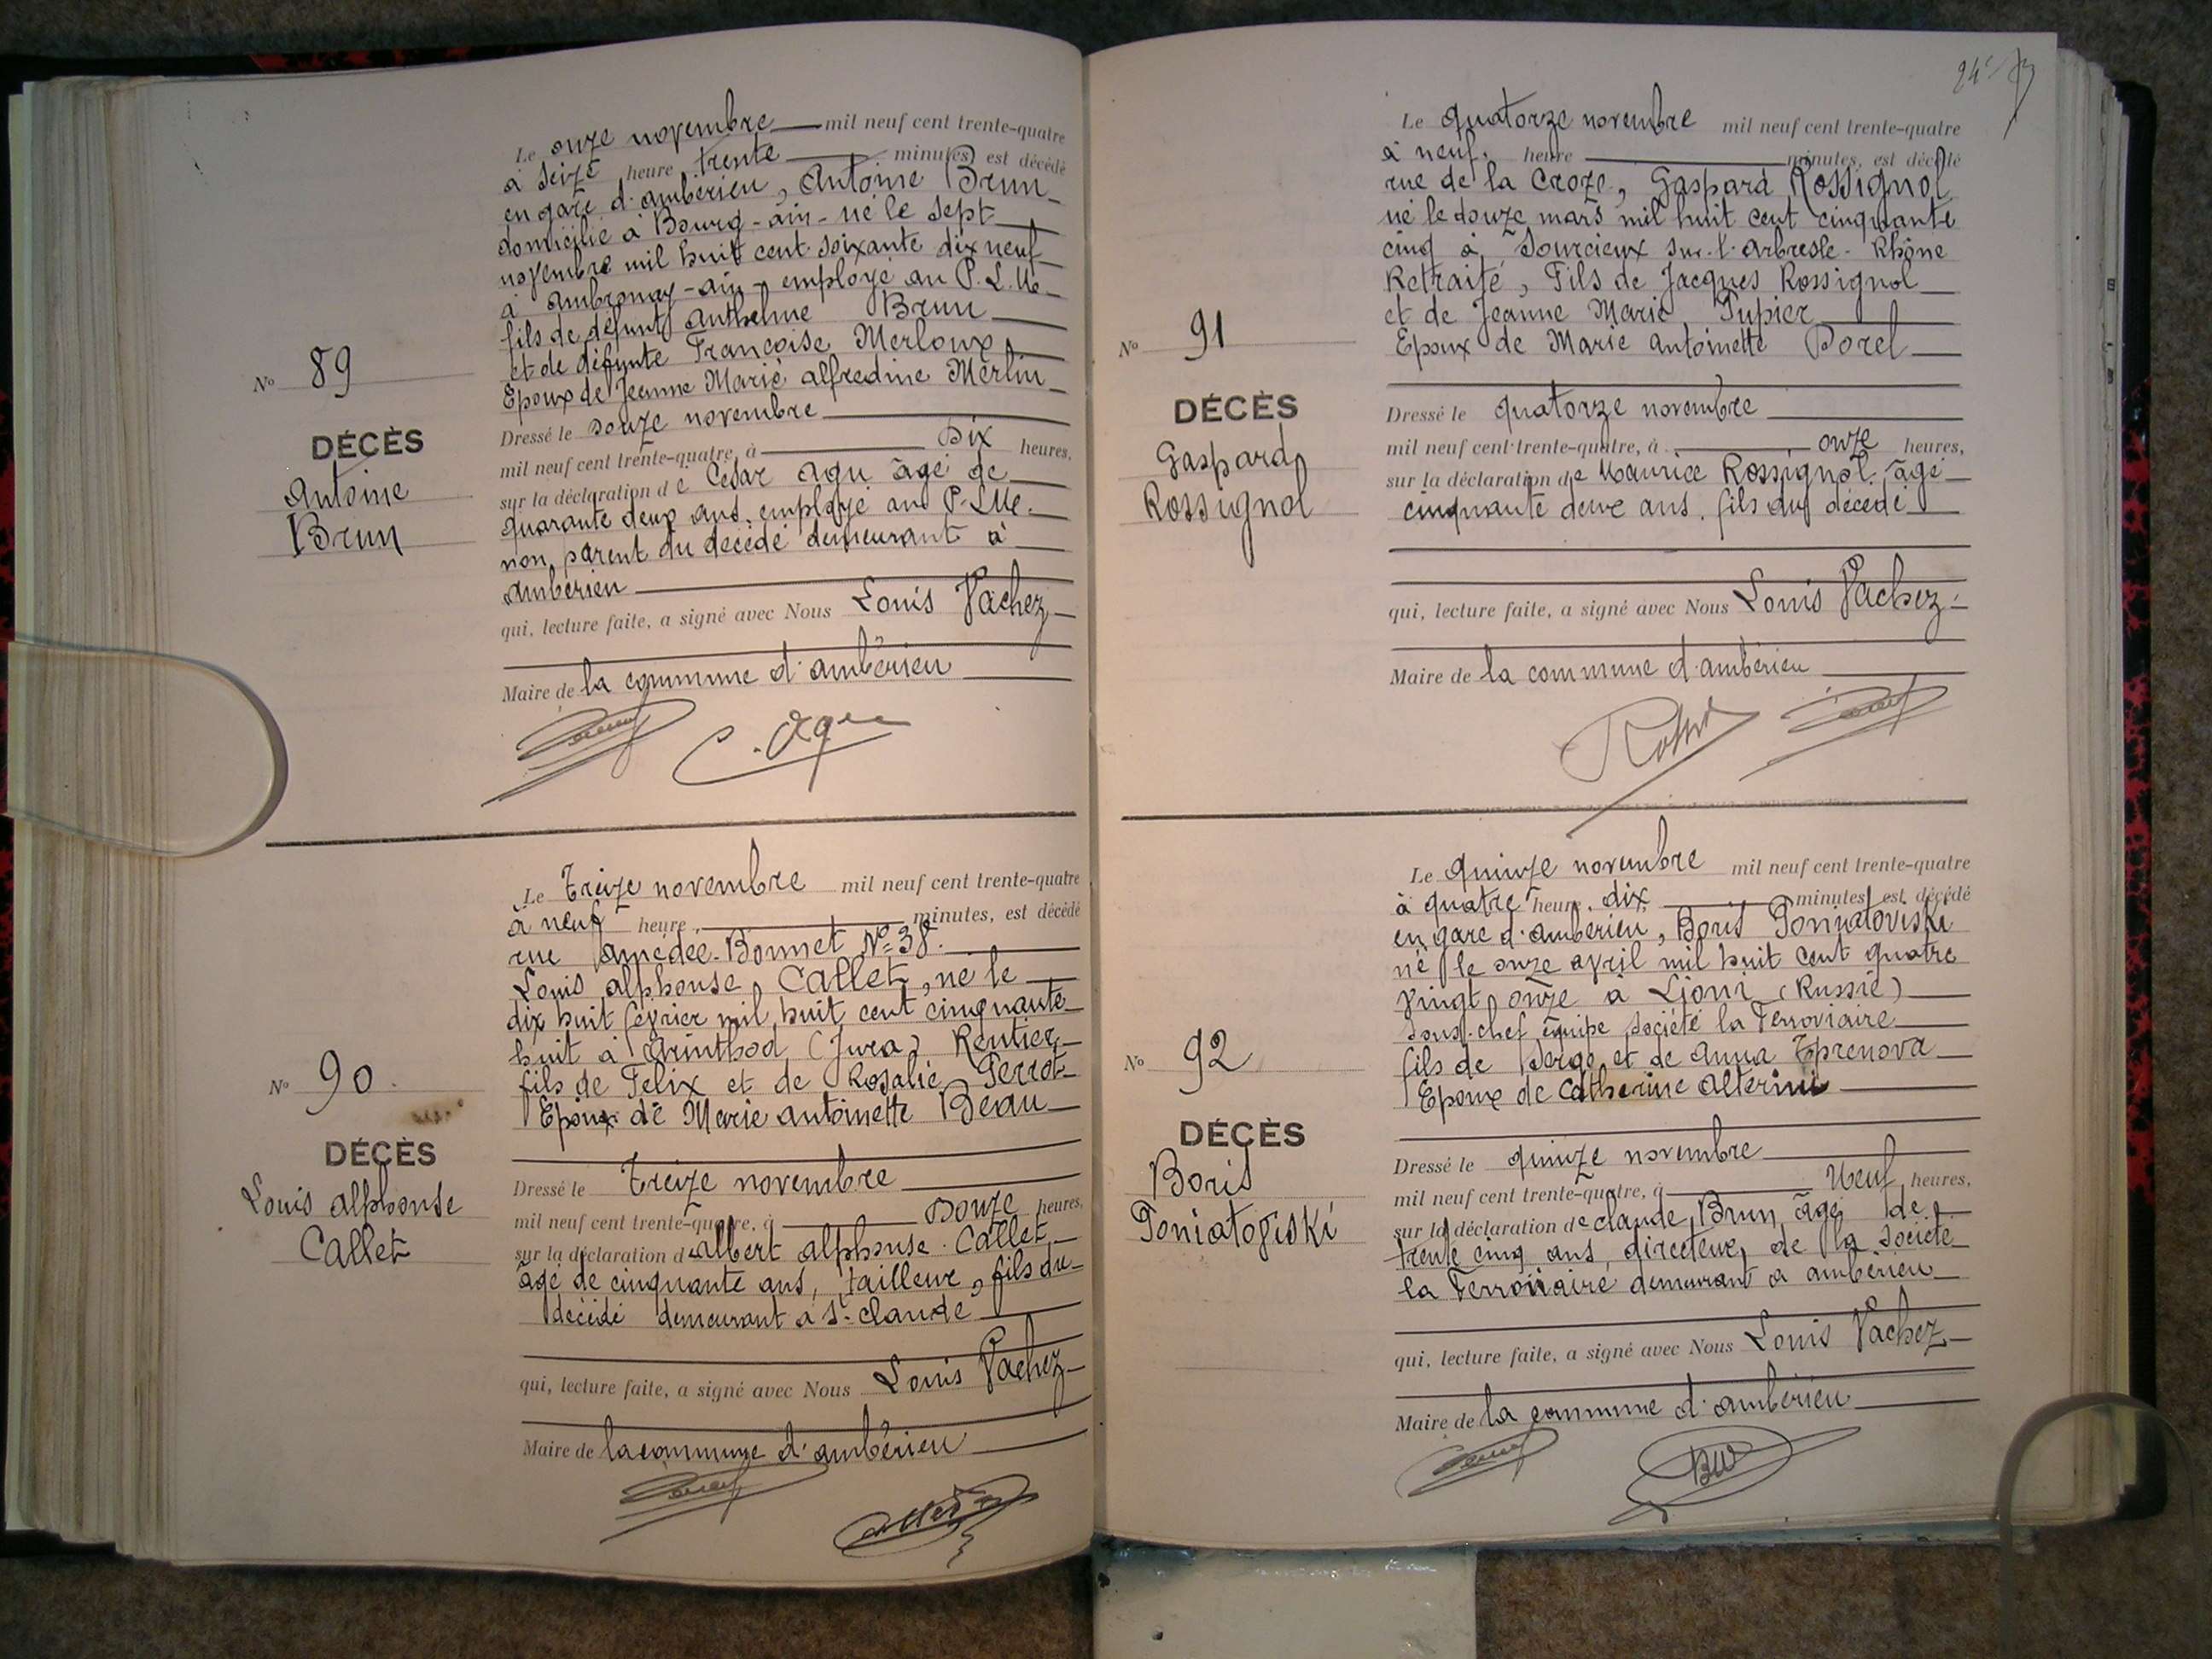 Le onze novembre mil neuf cent trente-quatre
à seize heure trente minutes, est décédé
en gare d'ambérieu, Antoine Brun
domicilié à Bourg-ain- né le sept
novembre mil huit cent soixante dix neuf
à ambronay-ain, employé au P.L.M.
fils de défunt Anthelme Brun
et de défunte Françoise Merloux
Epoux de Jeanne Marie alfredine Merlin
Dressé le douze novembre
mil neuf cent trente-quatre, à dix heures,
sur la déclaration de César Agu âgé de
quarante deux ans, employé au P.L.M.
non parent du décédé demeurant à
ambérieu
qui, lecture faite, a signé avec Nous Louis Vachez
Maire de la commune d'ambérieu
C. Agu
N° 89
DÉCÈS
Antoine
Brun
Le treize novembre mil neuf cent trente-quatre
à neuf heure, minutes, est décédé
rue Amédée-Bonnet N° 38.
Louis alphonse Callet, né le
dix huit février mil huit cent cinquante
huit à Arinthod (Jura) Rentier
fils de Felix et de Rosalie Perrot
Epoux de Marie antoinette Beau
Dressé le treize novembre
mil neuf cent trente-quatre, à Douze heures,
sur la déclaration d'albert alphonse Callet
âgé de cinquante ans, tailleur, fils du
décédé demeurant à St-claude
qui, lecture faite, a signé avec Nous Louis Vachez
Maire de la commune d'ambérieu
N° 90
DÉCÈS
Louis alphonse
Callet
Le quatorze novembre mil neuf cent trente-quatre
à neuf, heure minutes, est décédé
rue de la Croze, Gaspard Rossignol
né le douze mars mil huit cent cinquante
cinq à Sourcieux sur-l'arbresle-Rhône
Retraité, Fils de Jacques Rossignol
et de Jeanne Marie Pupier
Epoux de Marie antoinette Borel
Dressé le quatorze novembre
mil neuf cent trente-quatre, à onze heures,
sur la déclaration de Maurice Rossignol, âgé
cinquante deux ans, fils du décédé
qui, lecture faite, a signé avec Nous Louis Vachez
Maire de la commune d'ambérieu
N° 91
DÉCÈS
Gaspard
Rossignol
Le quinze novembre mil neuf cent trente-quatre
à quatre heure, dix minutes, est décédé
en gare d'ambérieu, Boris Poniatoviski
né le onze avril mil huit cent quatre
vingt onze à Ljoni (Russie)
Sous-chef équipe société la Ferroviaire
fils de Serge et de Anna
Epoux de Catherine Alterini
Dressé le quinze novembre
mil neuf cent trente-quatre, à neuf heures,
sur la déclaration de claude Brun, âgé de
trente cinq ans, directeur de la société
la Ferroviaire demeurant à ambérieu
qui, lecture faite, a signé avec Nous Louis Vachez
Maire de la commune d'ambérieu
N° 92
DÉCÈS
Boris
Poniatoviski